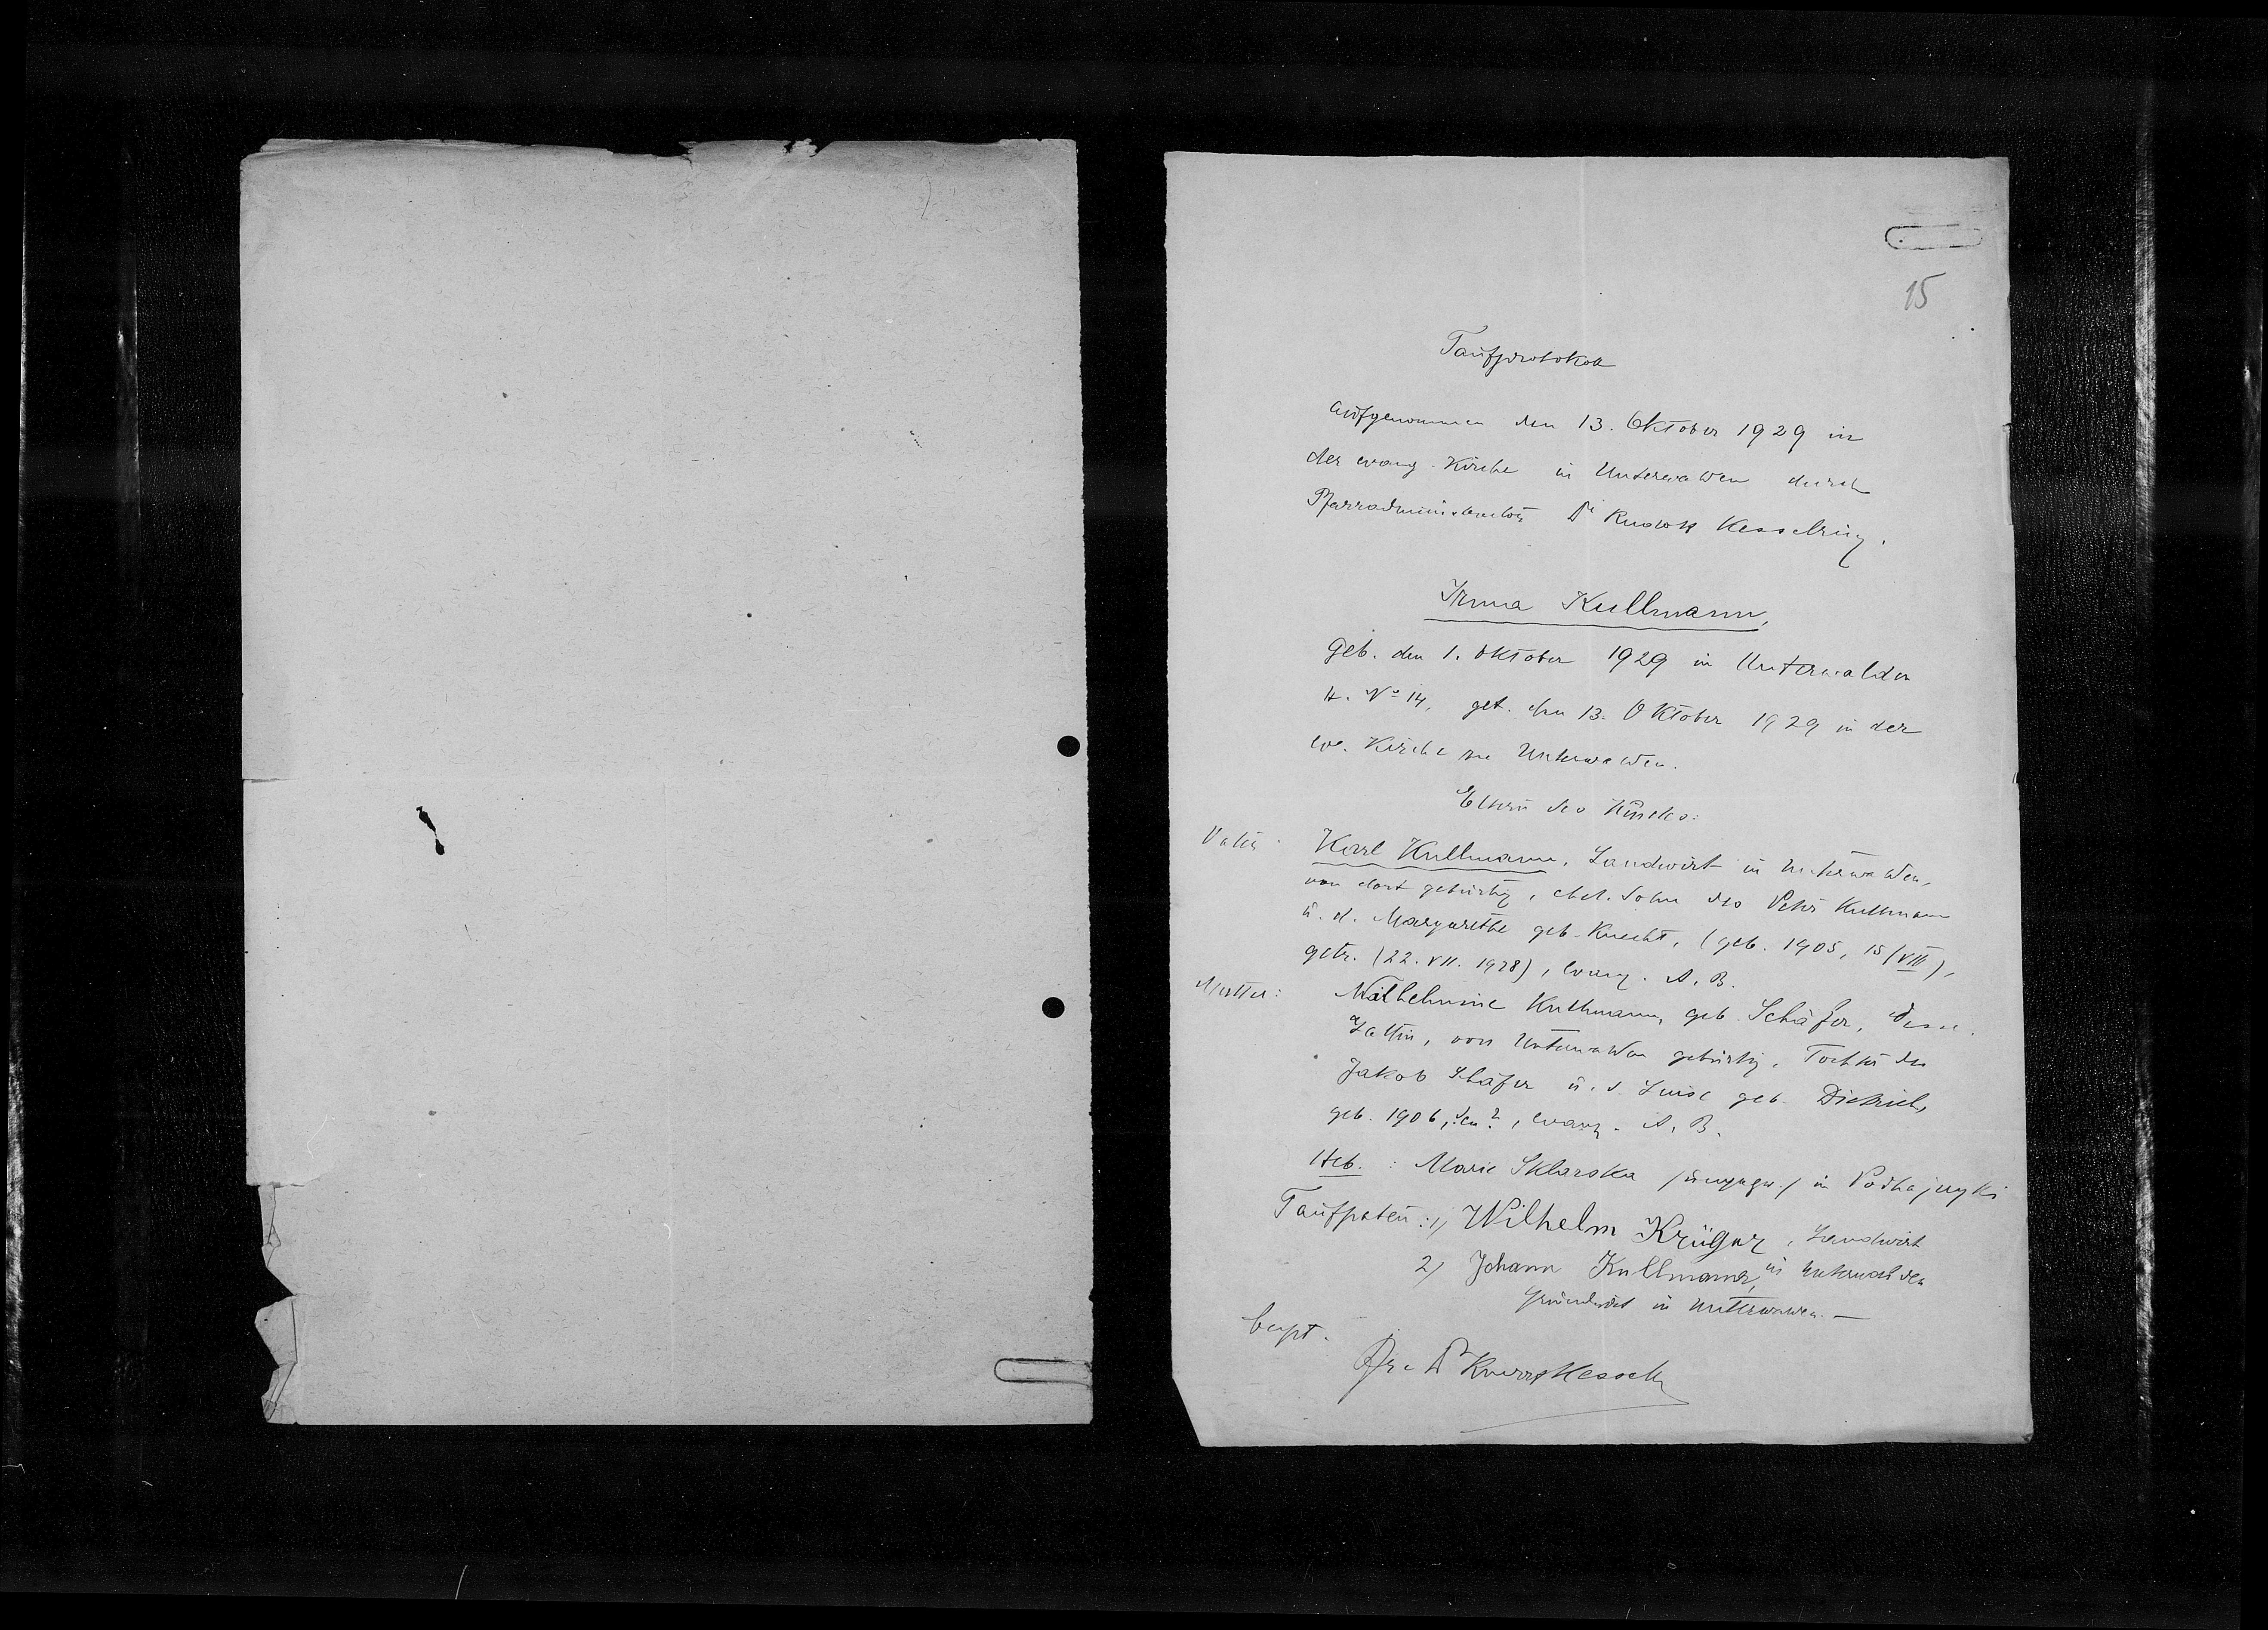 15
Taufprotokoll
aufgenommen den 13. Oktober 1929 in
der evang. Kirche in Unterwalden durch
Pfarradministrator Dr Rudolf Kesselring.
Irma Kullmann,
geb. den 1. Oktober 1929 in Unterwalden
H. No 14, get. den 13. Oktober 1929 in der
ev. Kirche zu Unterwalden.
Eltern des Kindes:
Vater: Karl Kullmann, Landwirt in Unterwalden,
von dort gebürtig, ehel. Sohn des Peter Kullmann
u. d. Margarethe geb. Knecht, (geb. 1905, 15/VIII),
getr. (22. VII. 1928), evang. A. B.
Mutter: Wilhelmine Kullmann, geb. Schäfer, dess.
Gattin, von Unterwalden gebürtig, Tochter des
Jakob Schäfer u. d. Luise geb. Dietrich,
geb. 1906, den ?, evang. A. B.
Heb.: Marie Sklarska in Podhajczyki
Taufpaten: 1) Wilhelm Krüger, Landwirt
in Unterwalden
2) Johann Kullmann,
Grundwirt in Unterwalden. —
Pfr. Dr